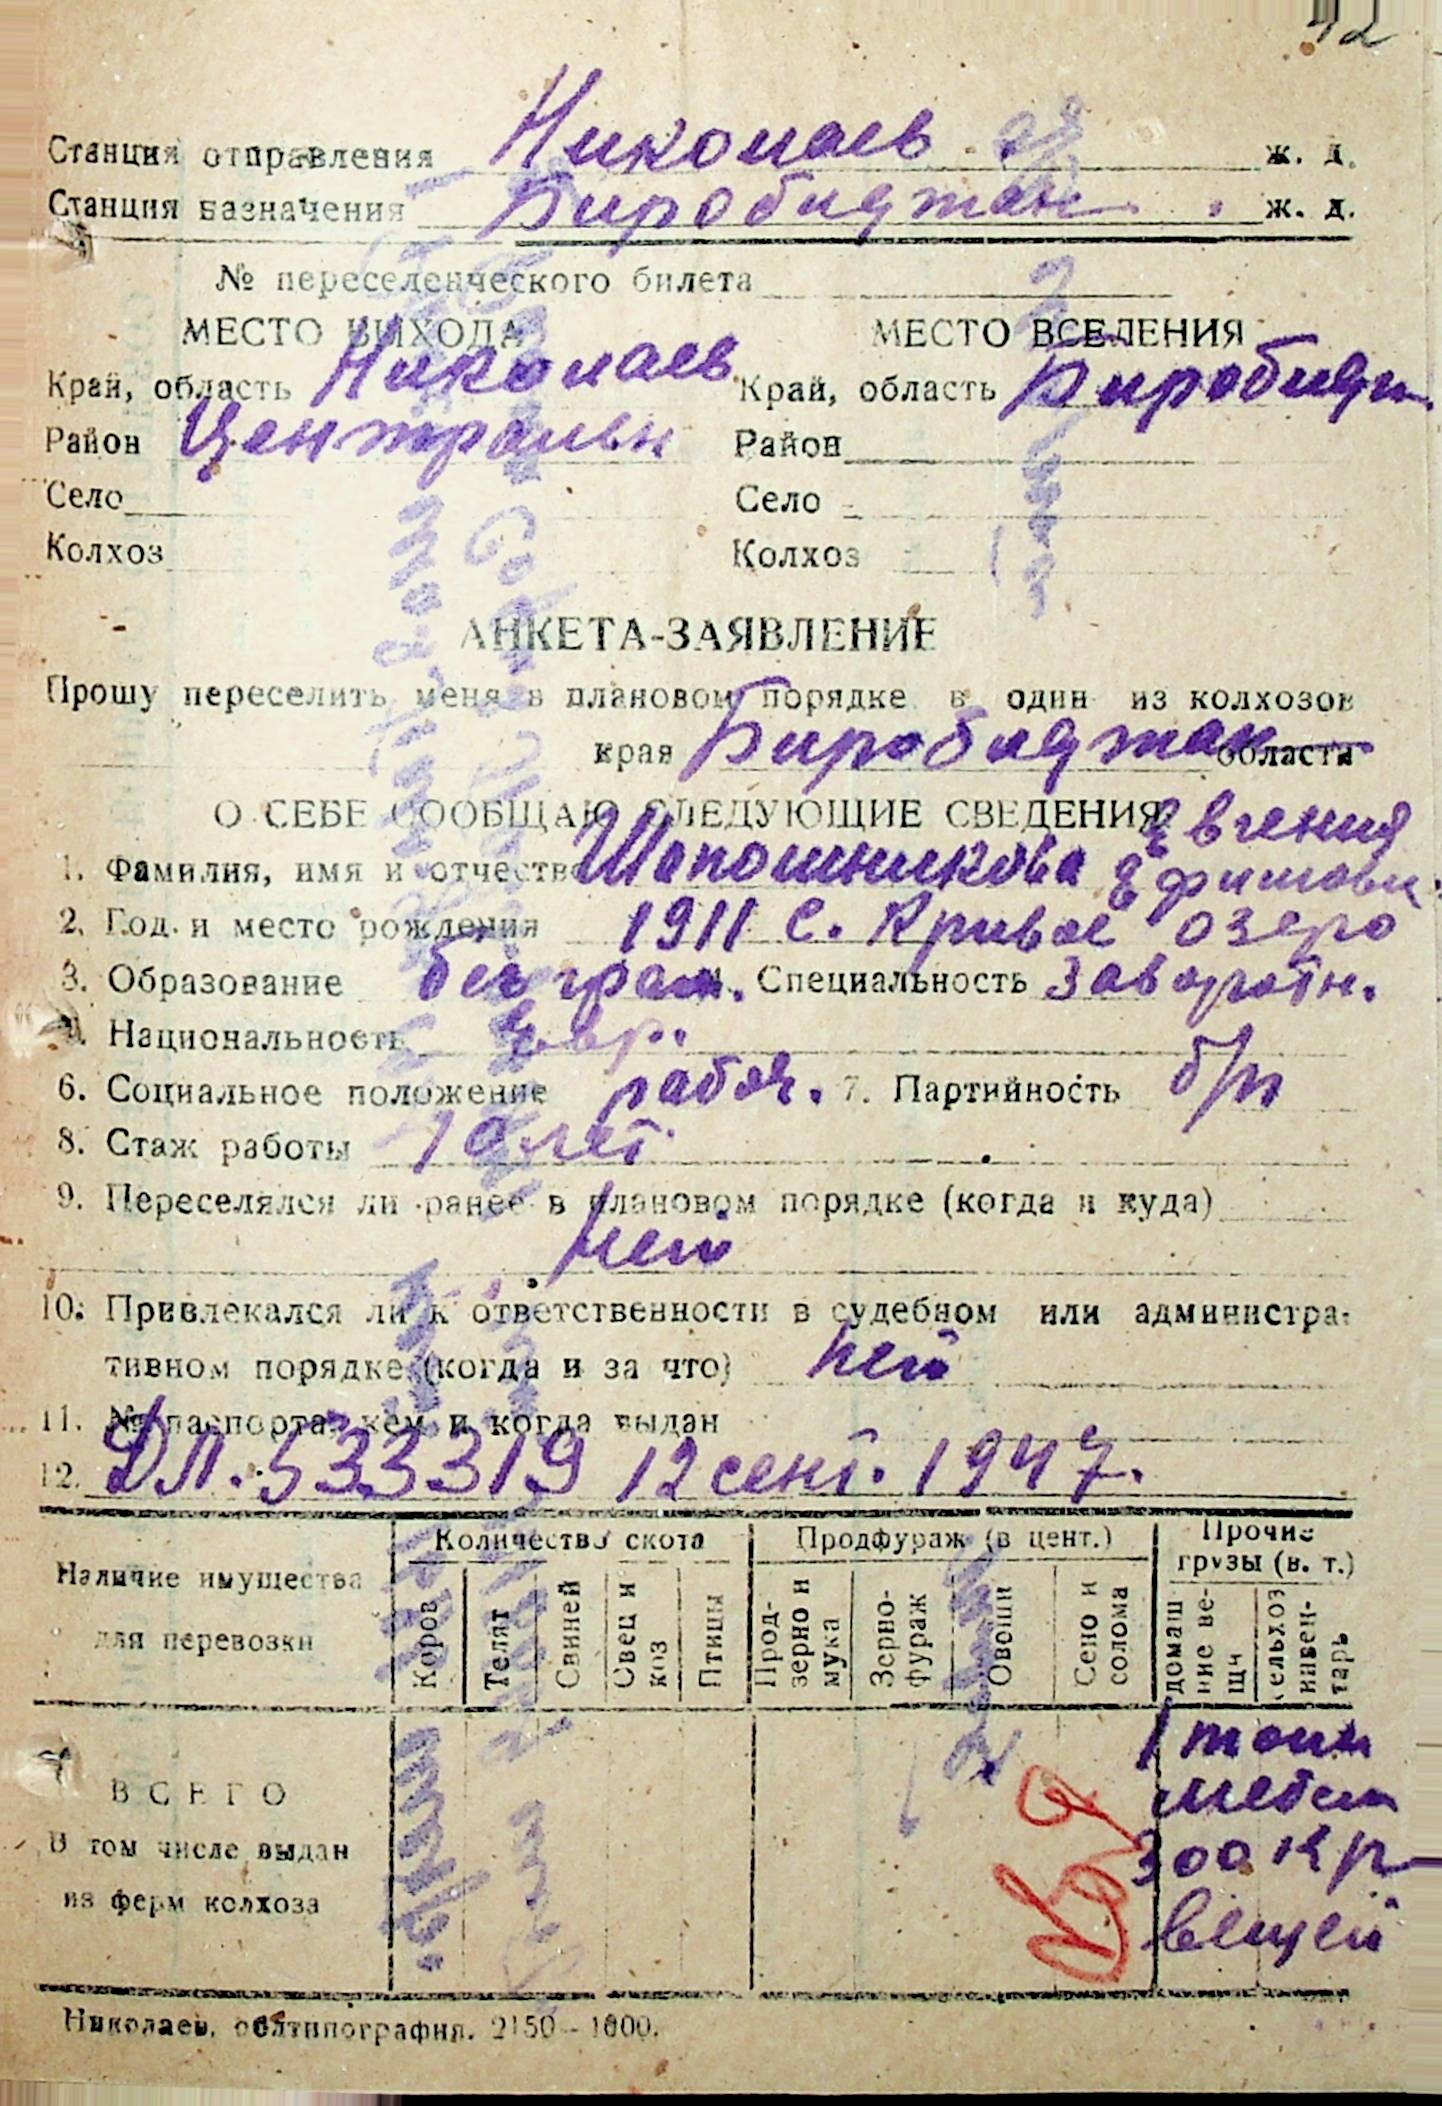 42
Станция отправления Николаев ж. д.
Станция назначения Биробиджан ж. д.
№ переселенческого билета
МЕСТО ВЫХОДА МЕСТО ВСЕЛЕНИЯ
Край, область Николаев Край, область Биробидж.
Район Центральн Район
Село Село
Колхоз Колхоз
АНКЕТА-ЗАЯВЛЕНИЕ
Прошу переселить меня в плановом порядке в один из колхозов
края Биробиджан области
О СЕБЕ СООБЩАЮ СЛЕДУЮЩИЕ СВЕДЕНИЯ
1. Фамилия, имя и отчество Шапошникова Евгения Ефимовн.
2. Год и место рождения 1911 с. Кривое Озеро
3. Образование без грам. Специальность
4. Национальность Евр.
6. Социальное положение рабоч. 7. Партийность б/п
8. Стаж работы 10 лет
9. Переселялся ли ранее в плановом порядке (когда и куда)
нет
10. Привлекался ли к ответственности в судебном или администра-
тивном порядке (когда и за что) нет
11. № паспорта, кем и когда выдан
12. 533319 12 сент. 1947.
Наличие имущества для перевозки
Количество скота Продфураж (в цент.) Прочие грузы (в. т.)
Коров Телят Свиней Овец и коз Птицы Прод-зерно и мука Зерно-фураж Овощи Сено и солома домашние ве-щи сельхоз инвен-тарь
ВСЕГО
В том числе выдан
из ферм колхоза
1 тонн
мебели
300 кг
вещей
Николаев, облтипография. 2150—1000.